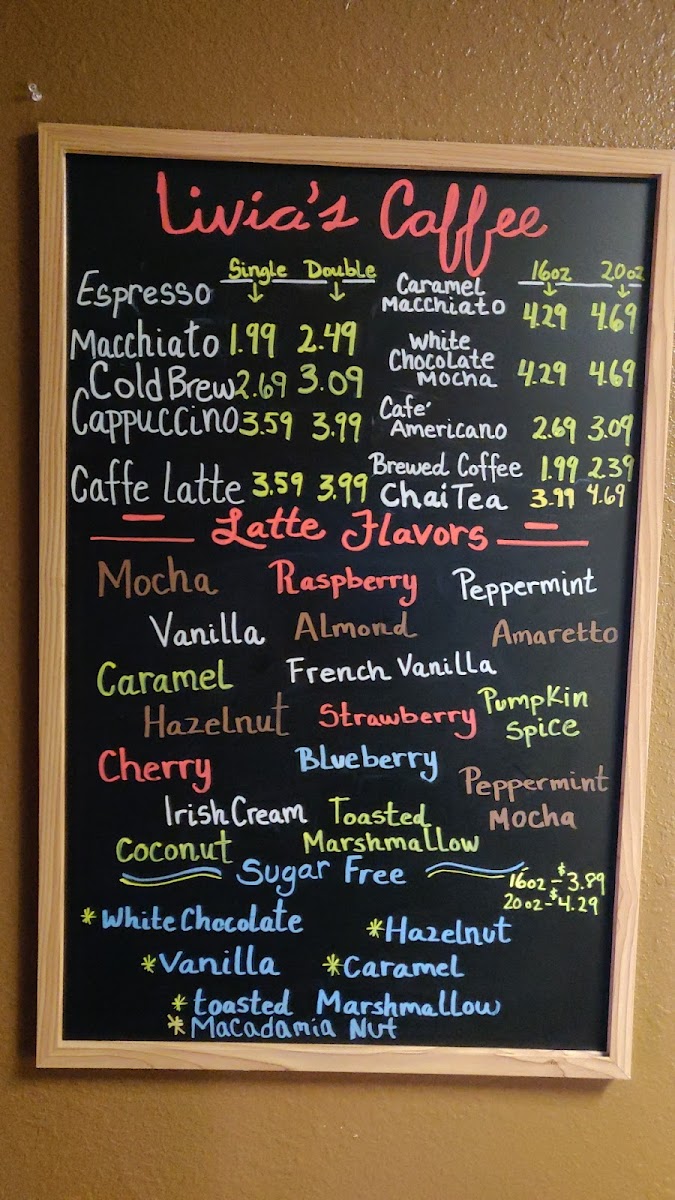 Livia's Caffee
Single Double
Espresso
Macchiato 1.99 2.49
Cold Brew 2.69 3.09
Cappuccino 3.59 3.99
Caffe Latte 3.59 3.99
16oz 20oz
Caramel
Macchiato 4.29 4.69
White
Chocolate
Mocha 4.29 4.69
Cafe'
Americano 2.69 3.09
Brewed Coffee 1.99 2.39
Chai Tea 3.99 4.69
Latte Flavors
Mocha Raspberry Peppermint
Vanilla Almond Amaretto
Caramel French Vanilla
Hazelnut Strawberry Pumpkin
Spice
Cherry Blueberry Peppermint
Mocha
Irish Cream Toasted
Marshmallow
Coconut
Sugar Free
16oz - $3.89
20oz - $4.29
*White Chocolate *Hazelnut
*Vanilla *Caramel
*toasted Marshmallow
*Macadamia Nut